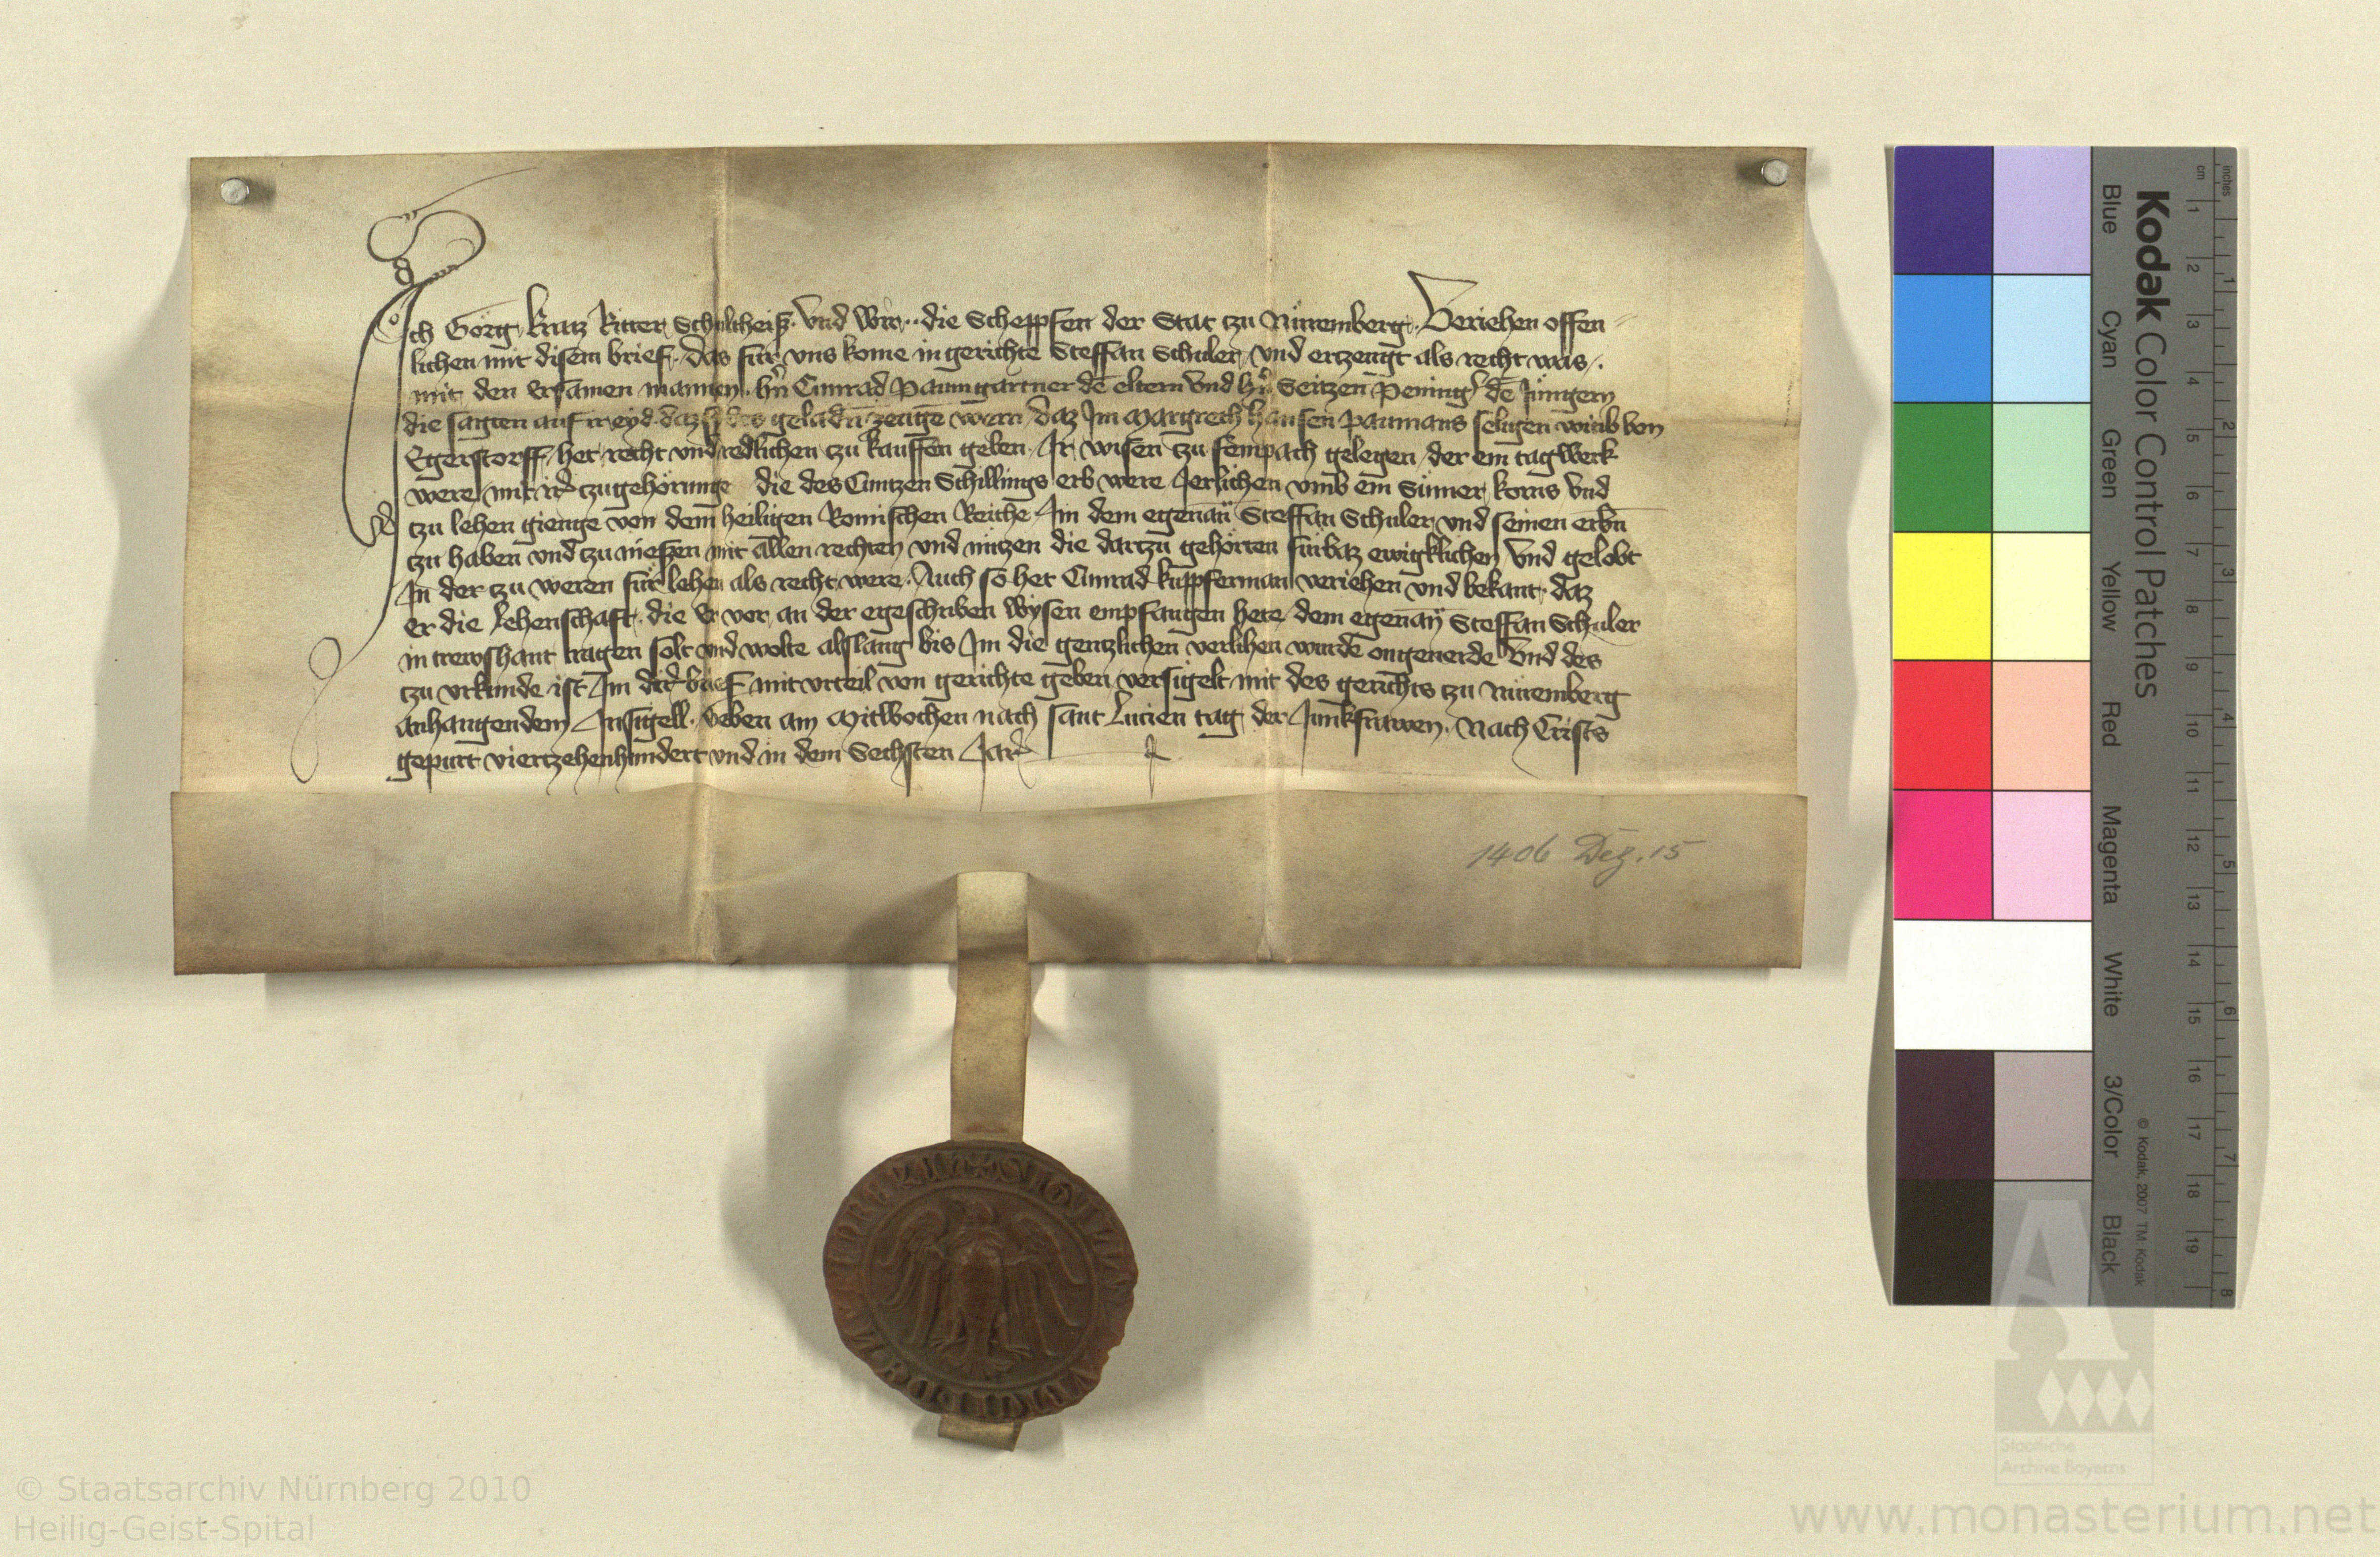 Ich Görg Kratz Ritter Schultheiß. Vnd Wir.. die Scheppfen der Stat zu Nüremberg. Veriehen offen-
lichen mit disem brief. das für vns kome in gerichte Steffan Schuler, vnd ertzeugt als recht was.
mit den Ersamen mannen. hn Cunrad Paumgartner de eltern vnd hn Seitzen Pening de Jüngern
die sagten auf ir eyd. daz des geladn zeuge wern, daz Im Margreth hansen paumans seligen witib von
Egerstorff, het recht vnd redlichen zu kauffen geben. Ir wisen zu sempach gelegen, der ein tagwerk
were, mit ir zugehörunge die des Cuntzen Schillings erb were Jerlichen vmb ein Sümer korns Vnd
tzu lehen gienge von dem heiligen Romischen Reiche. Im dem egenan Steffan Schuler, vnd seinen erbn
tzu haben vnd zu niessen mit allen rechten vnd nützen die dartzu gehörten fürbaz ewigklichen, Vnd gelobt
In der zu weren für lehen als recht were. Auch so het Cunrad kuppferman veriehen vnd bekant. daz
er die Lehenschaft. die Er vor, an der egeschriben Wysen empfangen hete, dem egenan Steffan Schuler
in trewshant tragen solt vnd wolte alslang bis Im die gentzlichen verlihen wurde ongeuerde Vnd des
tzu vrkunde ist Im dir brief mit vrteil von gerichte geben, versigelt mit des gerichts zu Nüremberg
anhangendem Insigell. Geben am Mitwochen nach sant Lucien tag der Junkfrawen. Nach Crists
gepurt viertzehenhundert vnd in dem Sechsten Jar
1406 Dez. 15
Kodak Color Control Patches
Blue Cyan Green Yellow Red Magenta White 3/Color Black
© Kodak, 2007 TM: Kodak
inches 1 2 3 4 5 6 7 8
cm 1 2 3 4 5 6 7 8 9 10 11 12 13 14 15 16 17 18 19
Staatliche
Archive Bayerns
© Staatsarchiv Nürnberg 2010
Heilig-Geist-Spital
www.monasterium.net